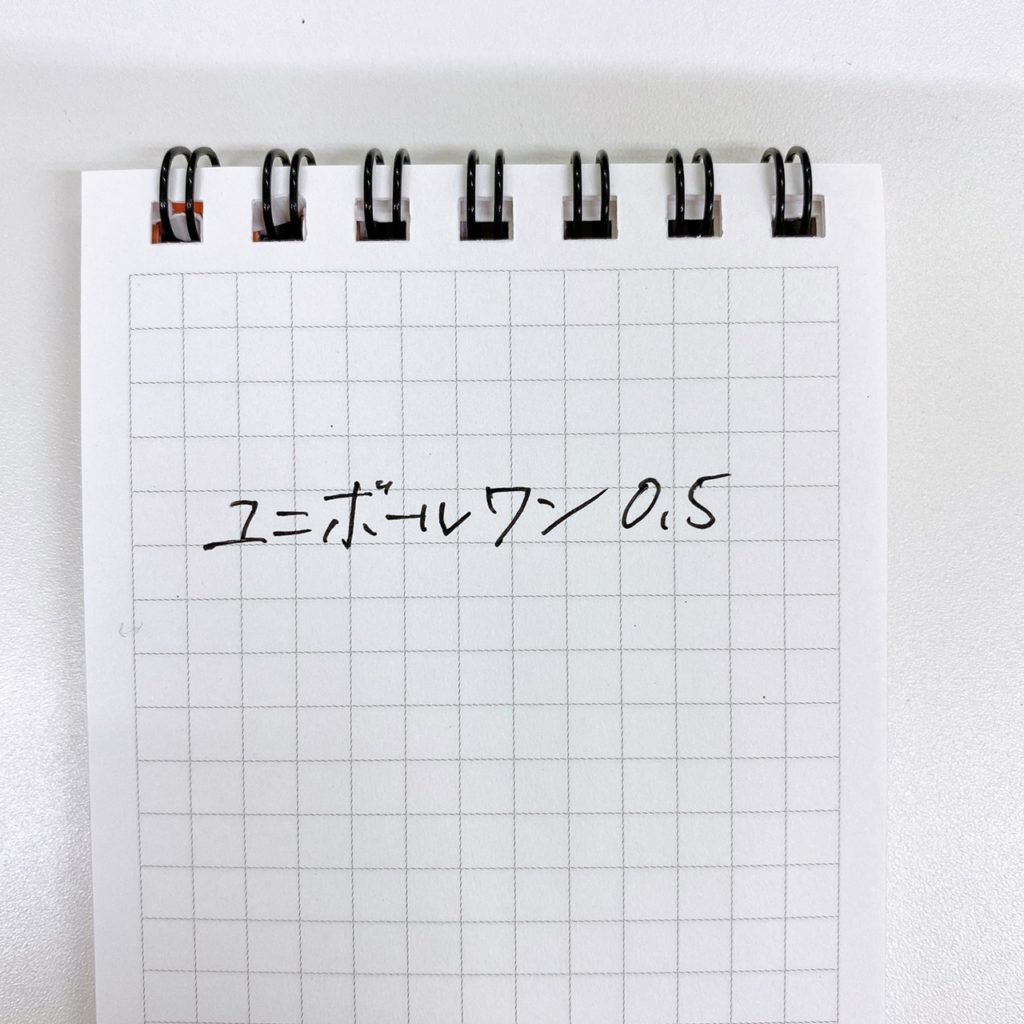 ユニボールワン 0.5